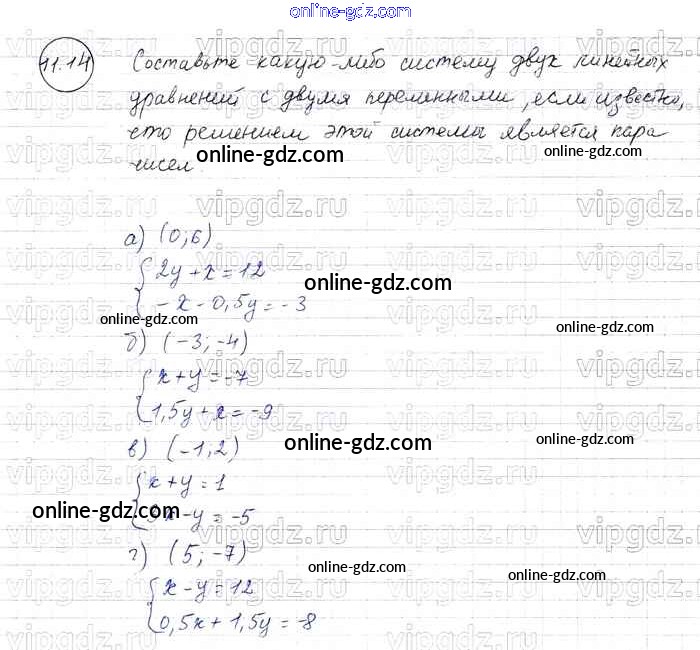 online-gdz.com
11.14 Составьте какую-либо систему двух линейных
уравнений с двумя переменными, если известно,
что решением этой системы является пара
чисел.
а) (0; 6)
2y + x = 12
-x - 0,5y = -3
б) (-3; -4)
x + y = -7
1,5y + x = -9
в) (-1; 2)
x + y = 1
3x - y = -5
г) (5; -7)
x - y = 12
0,5x + 1,5y = -8
vipgdz.ru
online-gdz.com
online-gdz.com
online-gdz.com
online-gdz.com
online-gdz.com
online-gdz.com
online-gdz.com
online-gdz.com
online-gdz.com
online-gdz.com